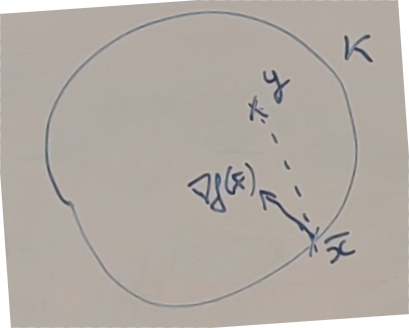 K
y
∇f(x̄)
x̄